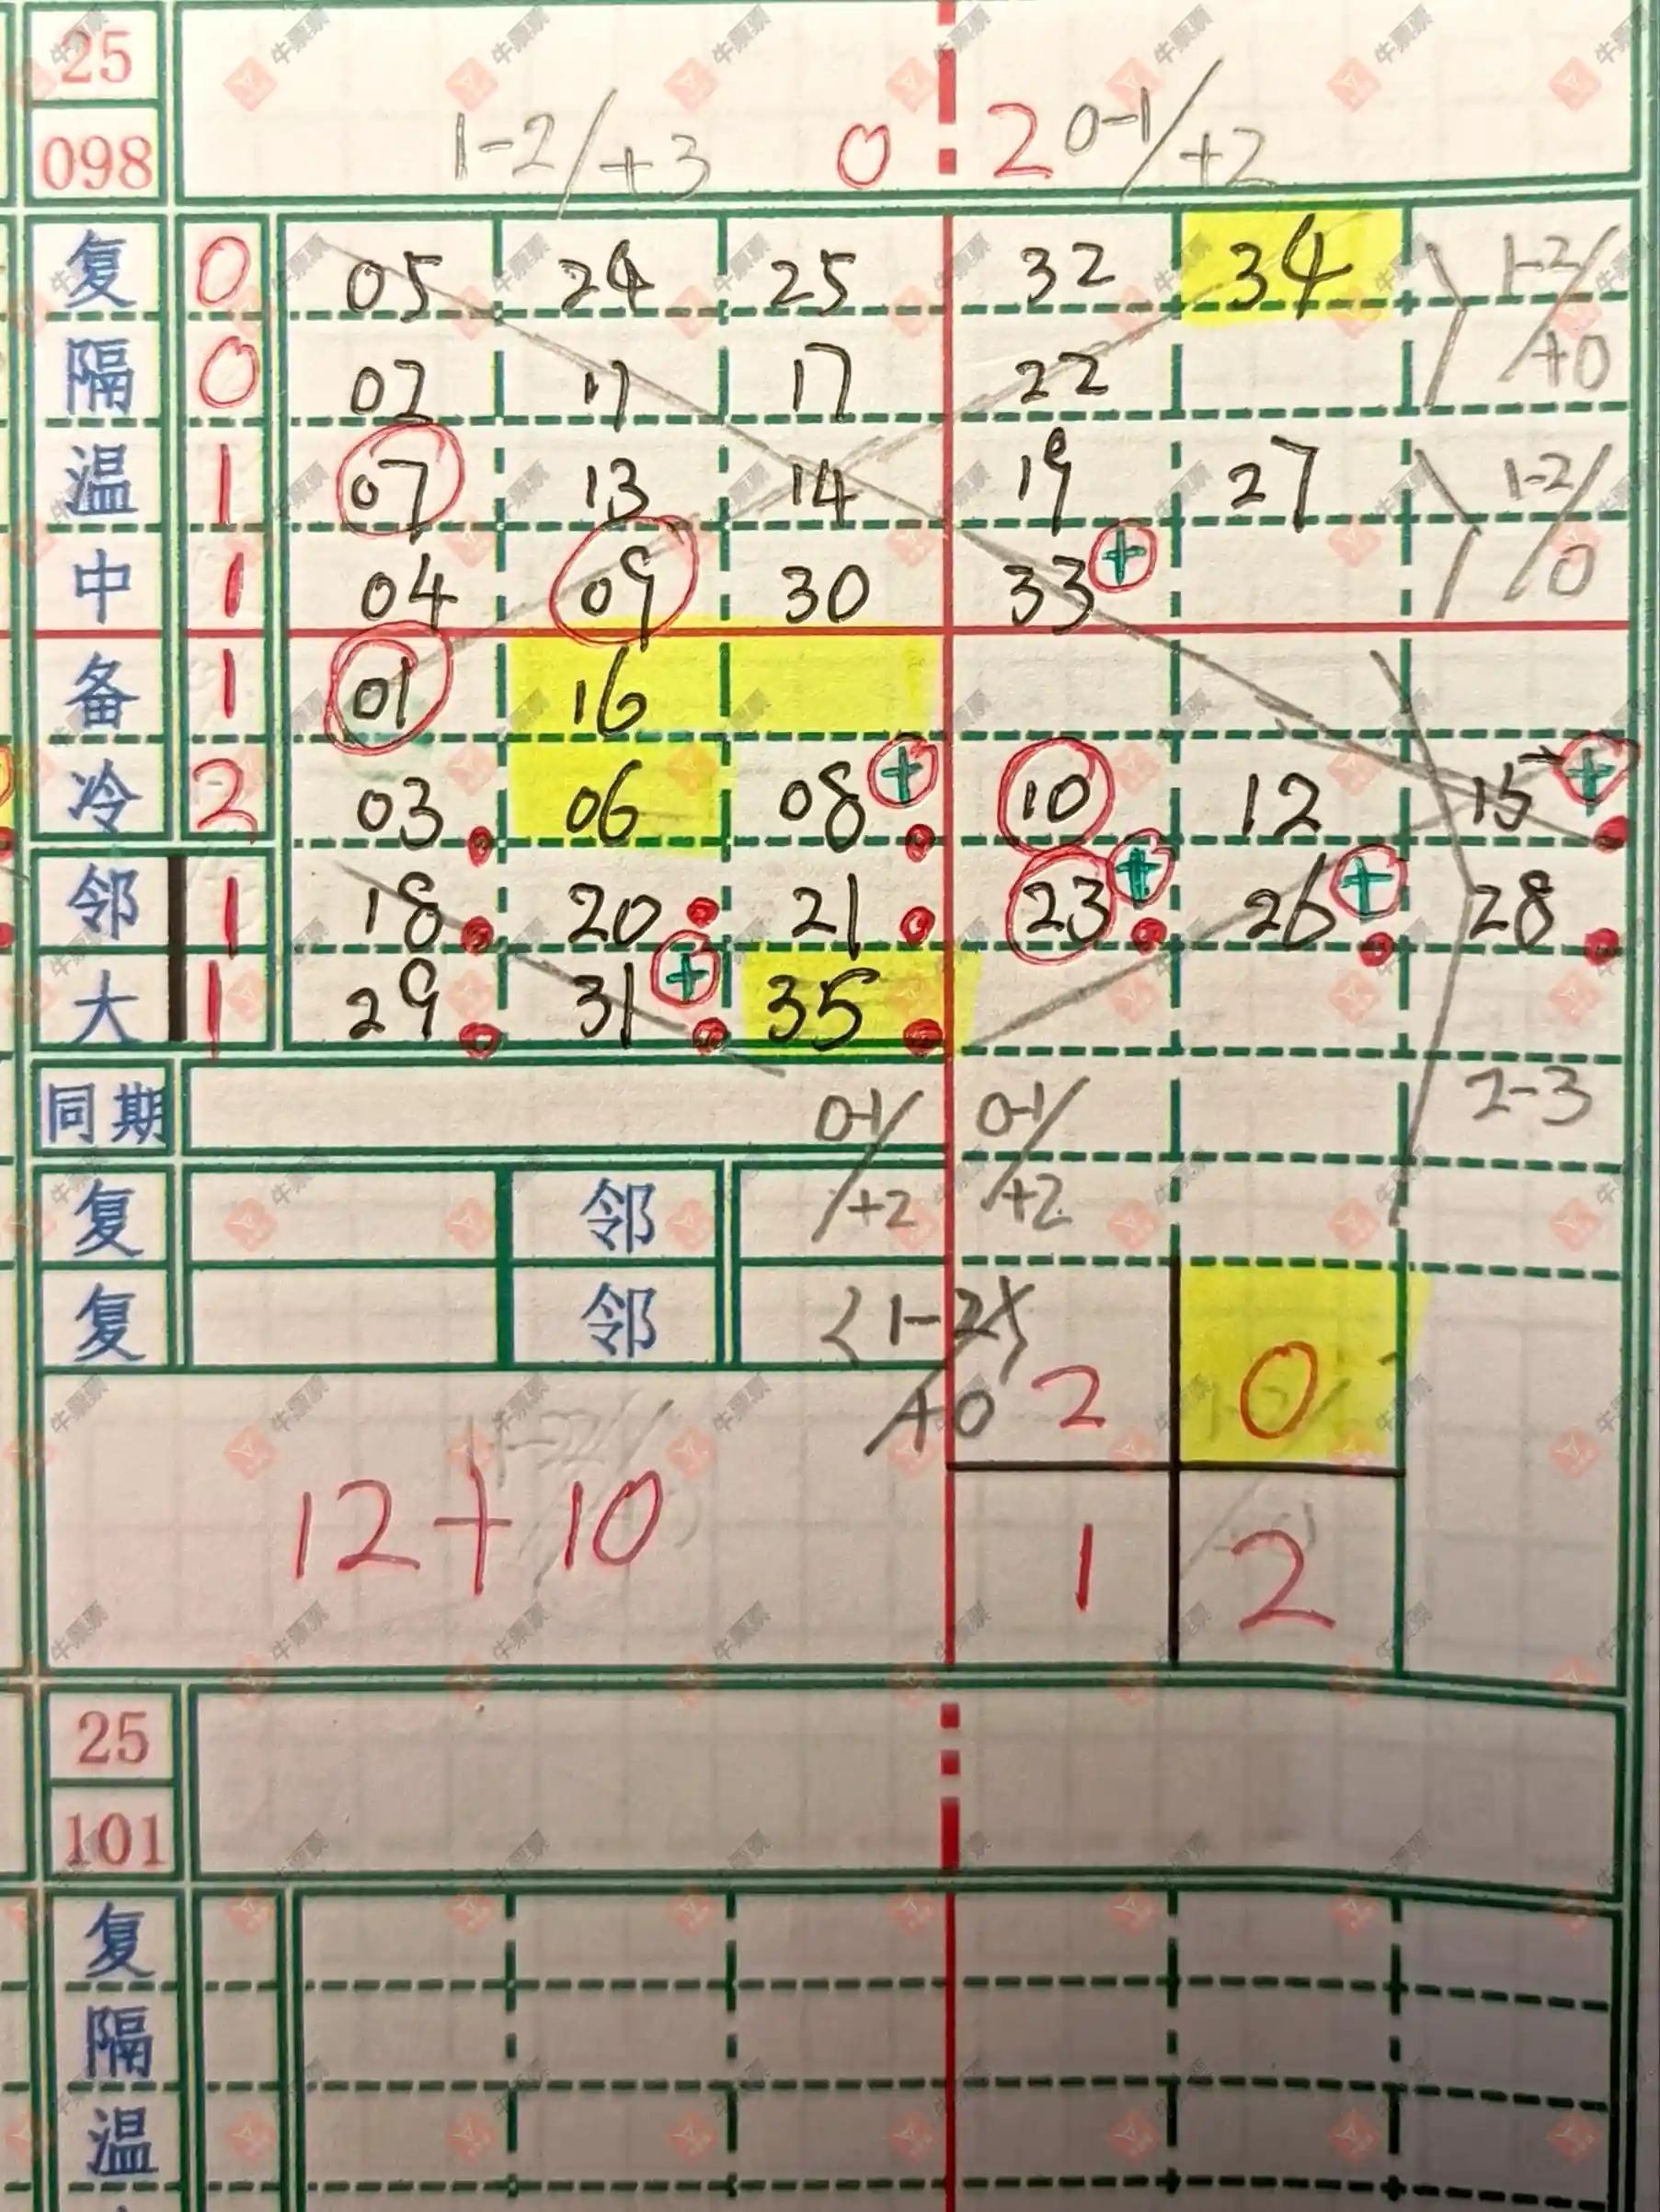 25
098
1-2/+3 0 2 0-1/+2
复 0 05 24 25 32 34 1-2/
隔 0 02 11 17 22 +0
温 1 07 13 14 19 27 1-2/
中 1 04 09 30 33 + 0
备 1 01 16
冷 2 03 06 08 + 10 12 15 +
邻 1 18 20 21 23 + 26 + 28
大 1 29 31 + 35
同期 0-1/ 0-1/ 2-3
复 邻 +2 +2
复 邻 1-2
+0 2 0
12+10 1 2
25
101
复
隔
温
牛票票